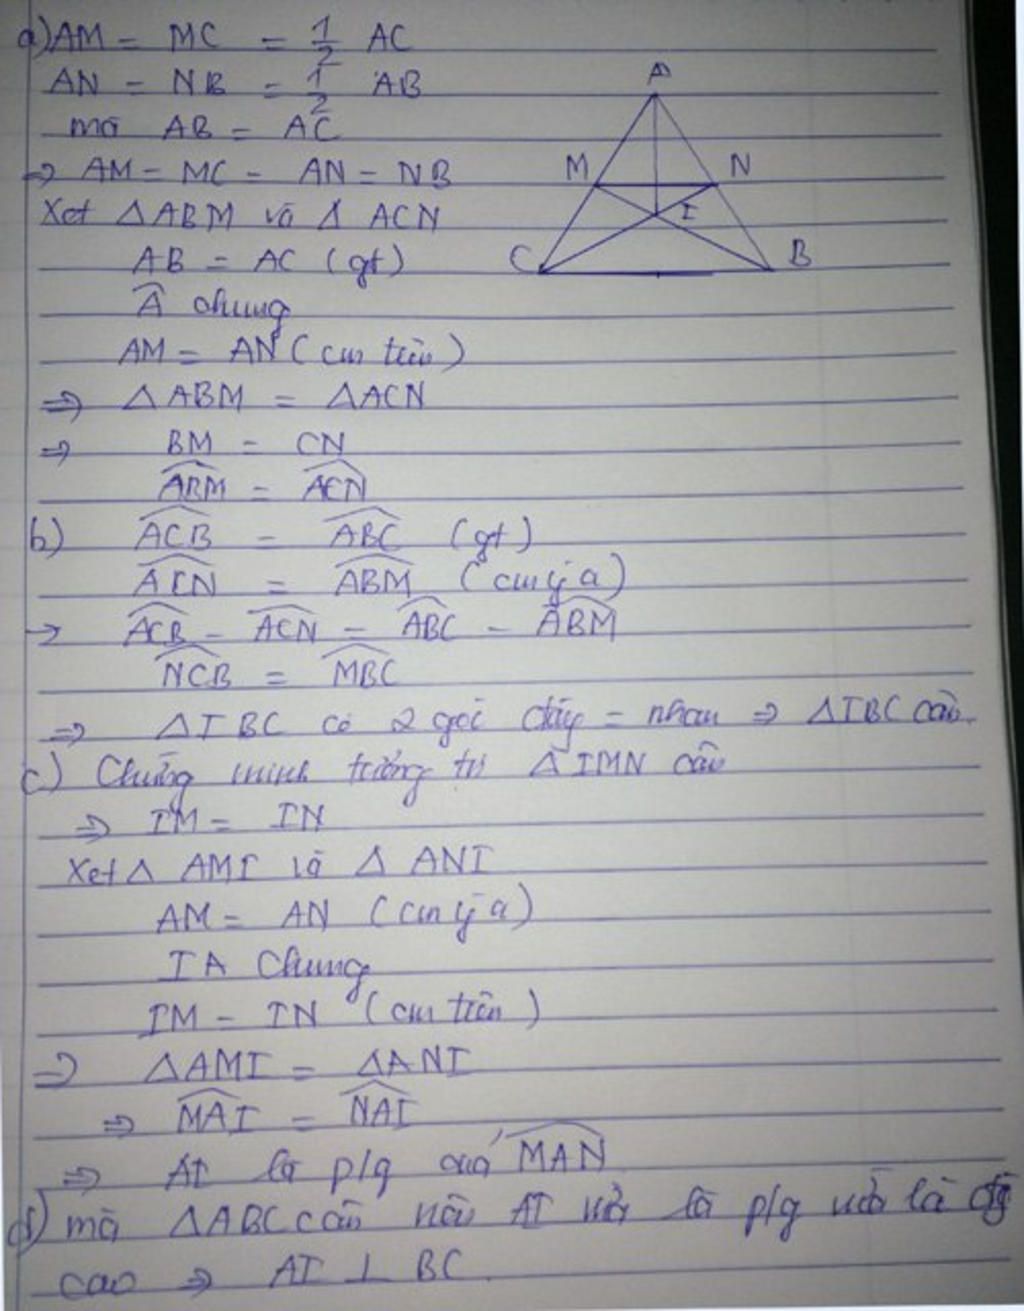 a) AM = MC = 1/2 AC
AN = NB = 1/2 AB
mà AB = AC
⇒ AM = MC = AN = NB
Xét △ABM và △ ACN
AB = AC (gt)
Â chung
AM = AN (cm trên)
⇒ △ABM = △ACN
⇒ BM = CN
ABM̂ = ACN̂
b) ACB̂ = ABĈ (gt)
ACN̂ = ABM̂ (cm ý a)
⇒ ACB̂ - ACN̂ = ABĈ - ABM̂
NCB̂ = MBĈ
⇒ △IBC có 2 góc đáy = nhau ⇒ △IBC cân.
c) Chứng minh tương tự △IMN cân
⇒ IM = IN
Xét △ AMI và △ ANI
AM = AN (cm ý a)
IA chung
IM = IN (cm trên)
⇒ △AMI = △ANI
⇒ MAÎ = NAÎ
⇒ AI là p/g của MAN̂
d) mà △ABC cân nên AI vừa là p/g vừa là đg
cao ⇒ AI ⊥ BC.
A
M N
I
C B